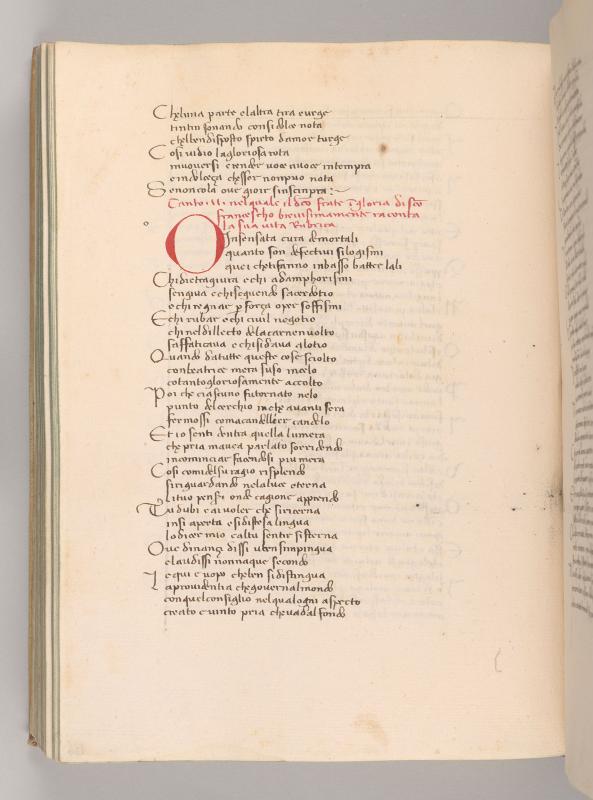 Chelluna parte elaltra tira e urge
tintin sonando con si dolce nota
chelben disposto spirto damor turge
Cosi vidio la gloriosa rota
muoversi e render voce avoce intempra
e in dolceça chesser non puo nota
Se non cola ove gioir sinsempra
Canto nel quale il decto frate Tgloria di sco
francescho brevissimamente racconta
la sua vita Rubrica
O Insensata cura de mortali
quanto son defectivi silogismi
quei cheti fanno inbasso batter lali
Chi dietro agiura e chi ad amphorismi
sen giva e chi seguendo sacerdotio
e chi regnar p força o per soffismi
E chi rubar e chi civil negotio
chi nel dilecto de la carne involto
saffaticava e chi si dava alotio
Quando da tutte queste cose sciolto
con beatrice mera suso incielo
cotanto gloriosamente accolto
Poi che ciascuno fu tornato nelo
punto del cerchio in che avanti sera
fermossi coma candellier candelo
Et io senti dentra quella lumera
che pria mavea parlato sorridendo
incominciar facendosi piu mera
Cosi comi del su ragio risplendo
si riguardando nela luce eterna
li tuoi pensier onde cagione apprendo
Tu dubi e ai voler che si ricerna
insi aperta e si distesa lingua
lo dicer mio caltu sentir si sterna
Ove dinanç dissi uben simpingua
e la u dissi non nacque secondo
E qui e uopo che ben si distingua
La providentia che governa il mondo
con quel consiglio nel qual ogni aspecto
creato e vinto pria che vada al fondo